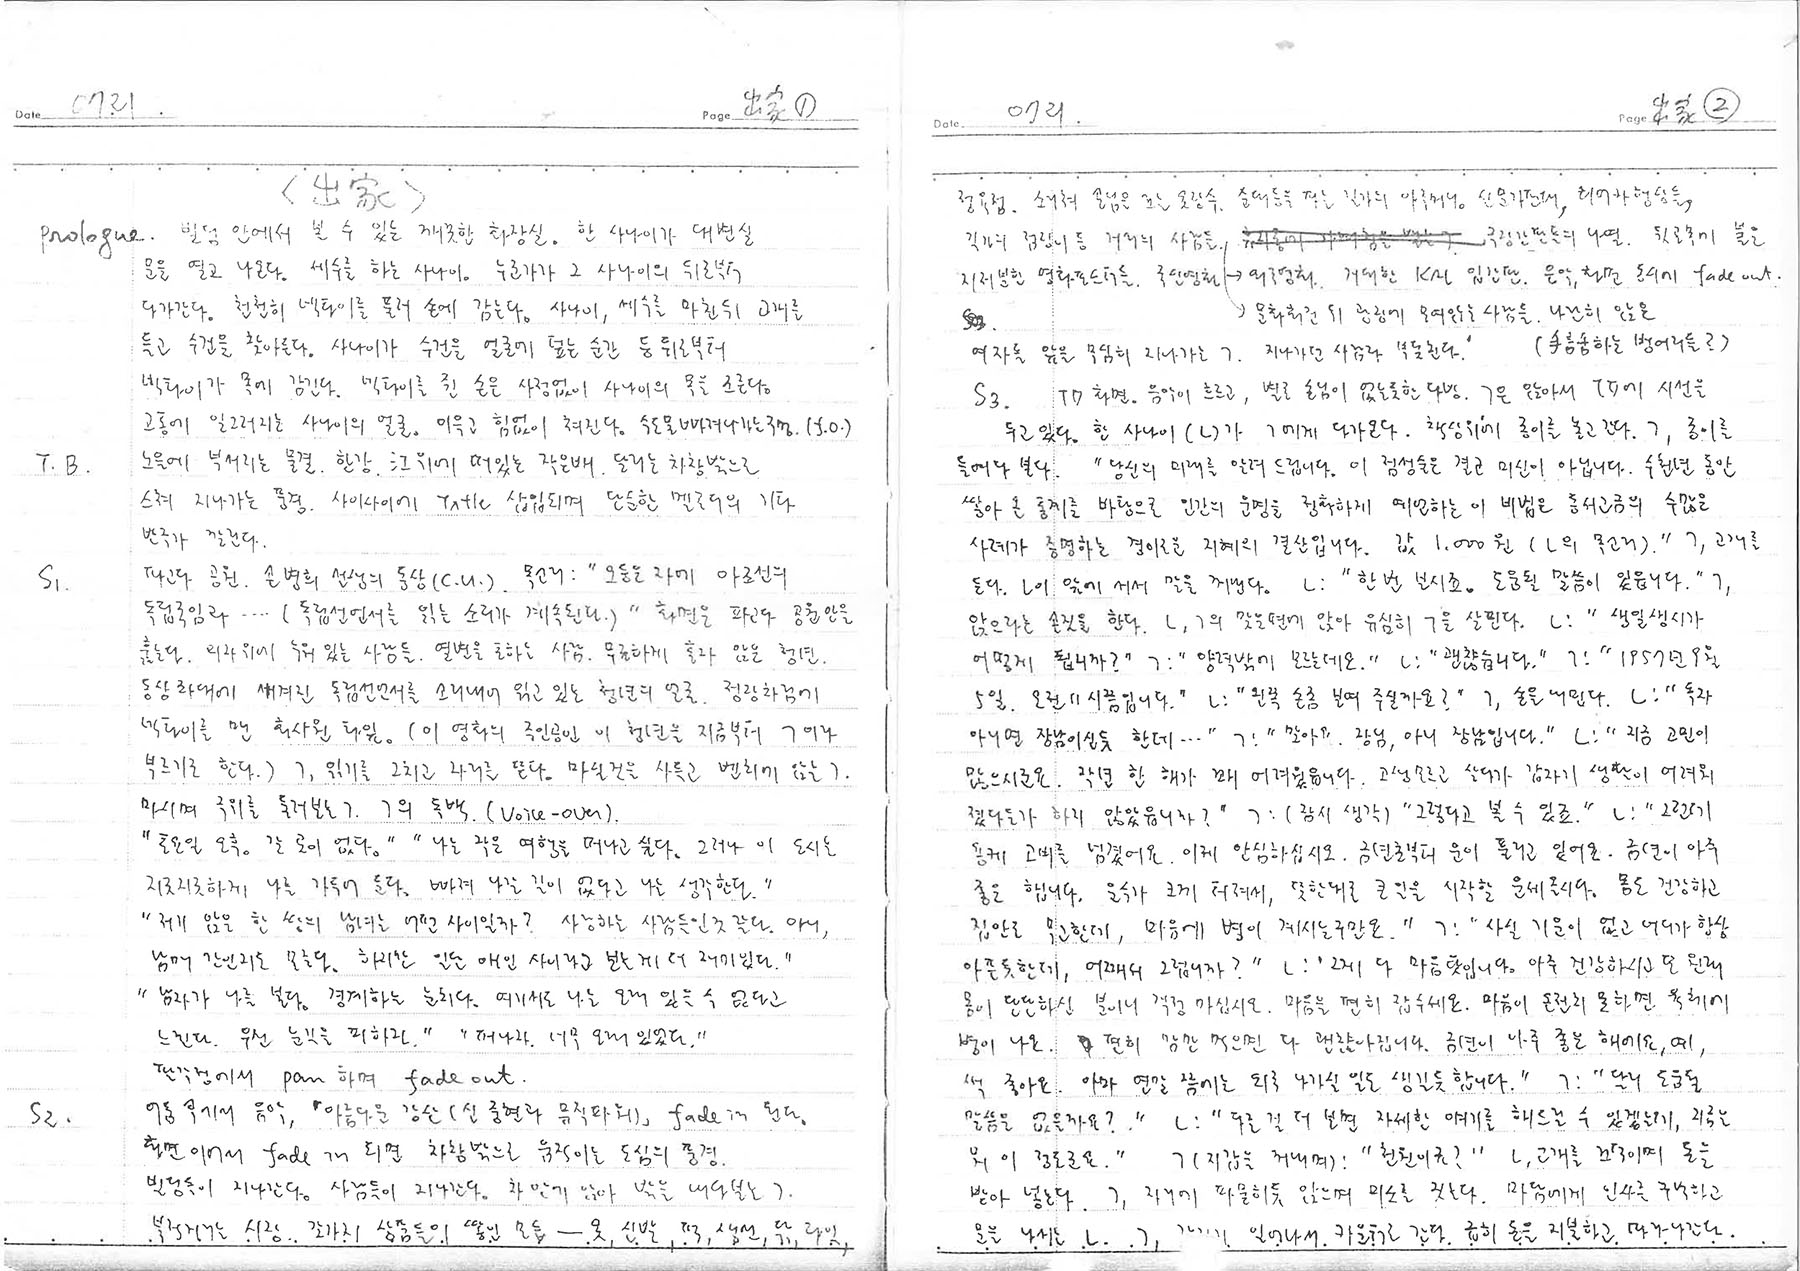 Date 야긔.
Page 出家 ①
〈出家〉
prologue. 빌딩 안에서 볼 수 있는 깨끗한 화장실. 한 사나이가 대변실
문을 열고 나온다. 세수를 하는 사나이. 누군가가 그 사나이의 뒤로부터
다가간다. 천천히 넥타이를 풀러 손에 감는다. 사나이, 세수를 마친뒤 고개를
들고 수건을 찾아든다. 사나이가 수건을 얼굴에 덮는 순간 등뒤로부터
넥타이가 목에 감긴다. 넥타이를 쥔 손은 사정없이 사나이의 목을 조른다.
고통에 일그러지는 사나이의 얼굴. 이윽고 힘없이 쳐진다. 수도물 빠져나가는구멍. (f.o.)
T.B. 노을에 부서지는 물결. 한강. 江위에 떠있는 작은배. 달리는 차창밖으로
스쳐 지나가는 풍경. 사이사이에 Title 삽입되며 단순한 멜로디의 기타
반주가 깔린다.
S1. 파고다 공원. 손병희 선생의 동상(C.U.). 목소리: "오등은 자에 아조선의
독립국임과 ‥‥ (독립선언서를 읽는 소리가 계속된다.)" 화면은 파고다 공원안을
훑는다. 의자위에 누워 있는 사람들. 열변을 토하는 사람. 무료하게 홀로 앉은 청년.
동상 좌대에 새겨진 독립선언서를 소리내어 읽고 있는 청년의 얼굴. 정장차림에
넥타이를 맨 회사원 타잎. (이 영화의 주인공인 이 청년을 지금부터 ㄱ이라
부르기로 한다.) ㄱ, 읽기를 그치고 자리를 뜬다. 마실것을 사들고 벤치에 앉는 ㄱ.
마시며 주위를 둘러보는 ㄱ. ㄱ의 독백. (Voice-over).
"토요일 오후. 갈 곳이 없다." "나는 작은 여행을 떠나고 싶다. 그러나 이 도시는
지긋지긋하게 나를 가두어 둔다. 빠져 나갈 길이 없다고 나는 생각한다."
"저기 앉은 한 쌍의 남녀는 어떤 사이일까? 사랑하는 사람들인것 같다. 아니,
남매 간인지도 모른다. 하지만 일단 애인 사이라고 보는게 더 재미있다."
"남자가 나를 본다. 경계하는 눈치다. 여기서도 나는 오래 있을 수 없다고
느낀다. 우선 눈길을 피하라." "떠나라. 너무 오래 있었다."
팔각정에서 pan 하며 fade out.
S2. 어둠 속에서 음악, 「아름다운 강산(신중현과 뮤직파워)」 fade in 된다.
화면 이어서 fade in 되면 차창밖으로 움직이는 도심의 풍경.
빌딩들이 지나간다. 사람들이 지나간다. 차 안에 앉아 밖을 내다보는 ㄱ.
북적거리는 시장. 갖가지 상품들의 쌓인 모습 — 옷, 신발, 떡, 생선, 닭, 과일,
Date 야긔.
Page 出家 ②
정육점. 소리쳐 손님을 모는 옷장수. 순대등을 파는 길가의 아주머니. 신문가판대, 리어카행상들,
길가의 점장이 등 거리의 사람들. 극장간판들의 나열. 뒷골목에 붙은
지저분한 영화포스터들. 국산영화 → 외국영화. 거대한 KAL 입간판. 음악, 화면 동시에 fade out.
→ 문화회관 뒤 광장에 모여앉은 사람들. 나란히 앉은
여자들 앞을 무심히 지나가는 ㄱ. 지나가던 사람과 부딪친다. (手話하는 벙어리들로)
S3. TV 화면. 음악이 흐르고, 별로 손님이 없는듯한 다방. ㄱ은 앉아서 TV에 시선을
두고 있다. 한 사나이 (ㄴ)가 ㄱ에게 다가온다. 책상위에 종이를 놓고 간다. ㄱ, 종이를
들여다 본다. "당신의 미래를 알려 드립니다. 이 점성술은 결코 미신이 아닙니다. 수천년 동안
쌓아 온 통계를 바탕으로 인간의 운명을 정확하게 예언하는 이 비법은 동서고금의 수많은
사례가 증명하는 경이로운 지혜의 결산입니다. 값 1.000원 (ㄴ의 목소리)." ㄱ, 고개를
든다. ㄴ이 앞에 서서 말을 꺼낸다. ㄴ: "한번 보시죠. 도움될 말씀이 있읍니다." ㄱ,
앉으라는 손짓을 한다. ㄴ, ㄱ의 맞은편에 앉아 유심히 ㄱ을 살핀다. ㄴ: "생일생시가
어떻게 됩니까?" ㄱ: "양력밖에 모르는데요." ㄴ: "괜찮습니다." ㄱ: "1957년 9월
5일. 오전 11시쯤입니다." ㄴ: "왼쪽 손좀 보여 주실까요?" ㄱ, 손을 내민다. ㄴ: "독자
아니면 장남이신듯 한데…" ㄱ: "맞아요. 장님, 아니 장남입니다." ㄴ: "지금 고민이
많으시군요. 작년 한 해가 꽤 어려웠읍니다. 고생모르고 살다가 갑자기 생활이 어려워
졌다든가 하지 않았읍니까?" ㄱ: (잠시 생각) "그렇다고 볼 수 있죠." ㄴ: "그런데
용케 고비를 넘겼어요. 이제 안심하십시오. 금년초부터 운이 풀리고 있어요. 금년이 아주
좋은 합니다. 운수가 크게 터져서, 뜻한대로 큰일을 시작할 운세올시다. 몸도 건강하고
집안도 무고한데, 마음에 병이 계시는구만요." ㄱ: "사실 기운이 없고 어디가 항상
아픈듯한데, 어째서 그럽니까?" ㄴ: "그게 다 마음탓입니다. 아주 건강하시고 또 원래
몸이 단단하신 분이니 걱정 마십시오. 마음을 편히 잡수세요. 마음이 온전치 못하면 육체에
병이 나요. 편히 맘만 먹으면 다 괜찮아집니다. 금년이 아주 좋은 해에요, 예,
썩 좋아요. 아마 연말 쯤에는 외국 나가실 일도 생길듯 합니다." ㄱ: "달리 도움될
말씀은 없을까요?" ㄴ: "다른걸 더 보면 자세한 얘기를 해드릴 수 있겠는데, 지금은
뭐 이 정도군요." ㄱ (지갑을 꺼내며): "천원이죠?" ㄴ, 고개를 끄덕이며 돈을
받아 넣는다. ㄱ, 자리에 파묻히듯 앉으며 미소를 짓는다. 마담에게 인사를 꾸벅하고
문을 나서는 ㄴ. ㄱ, 일어나서 카운터로 간다. 급히 돈을 지불하고 따라나간다.